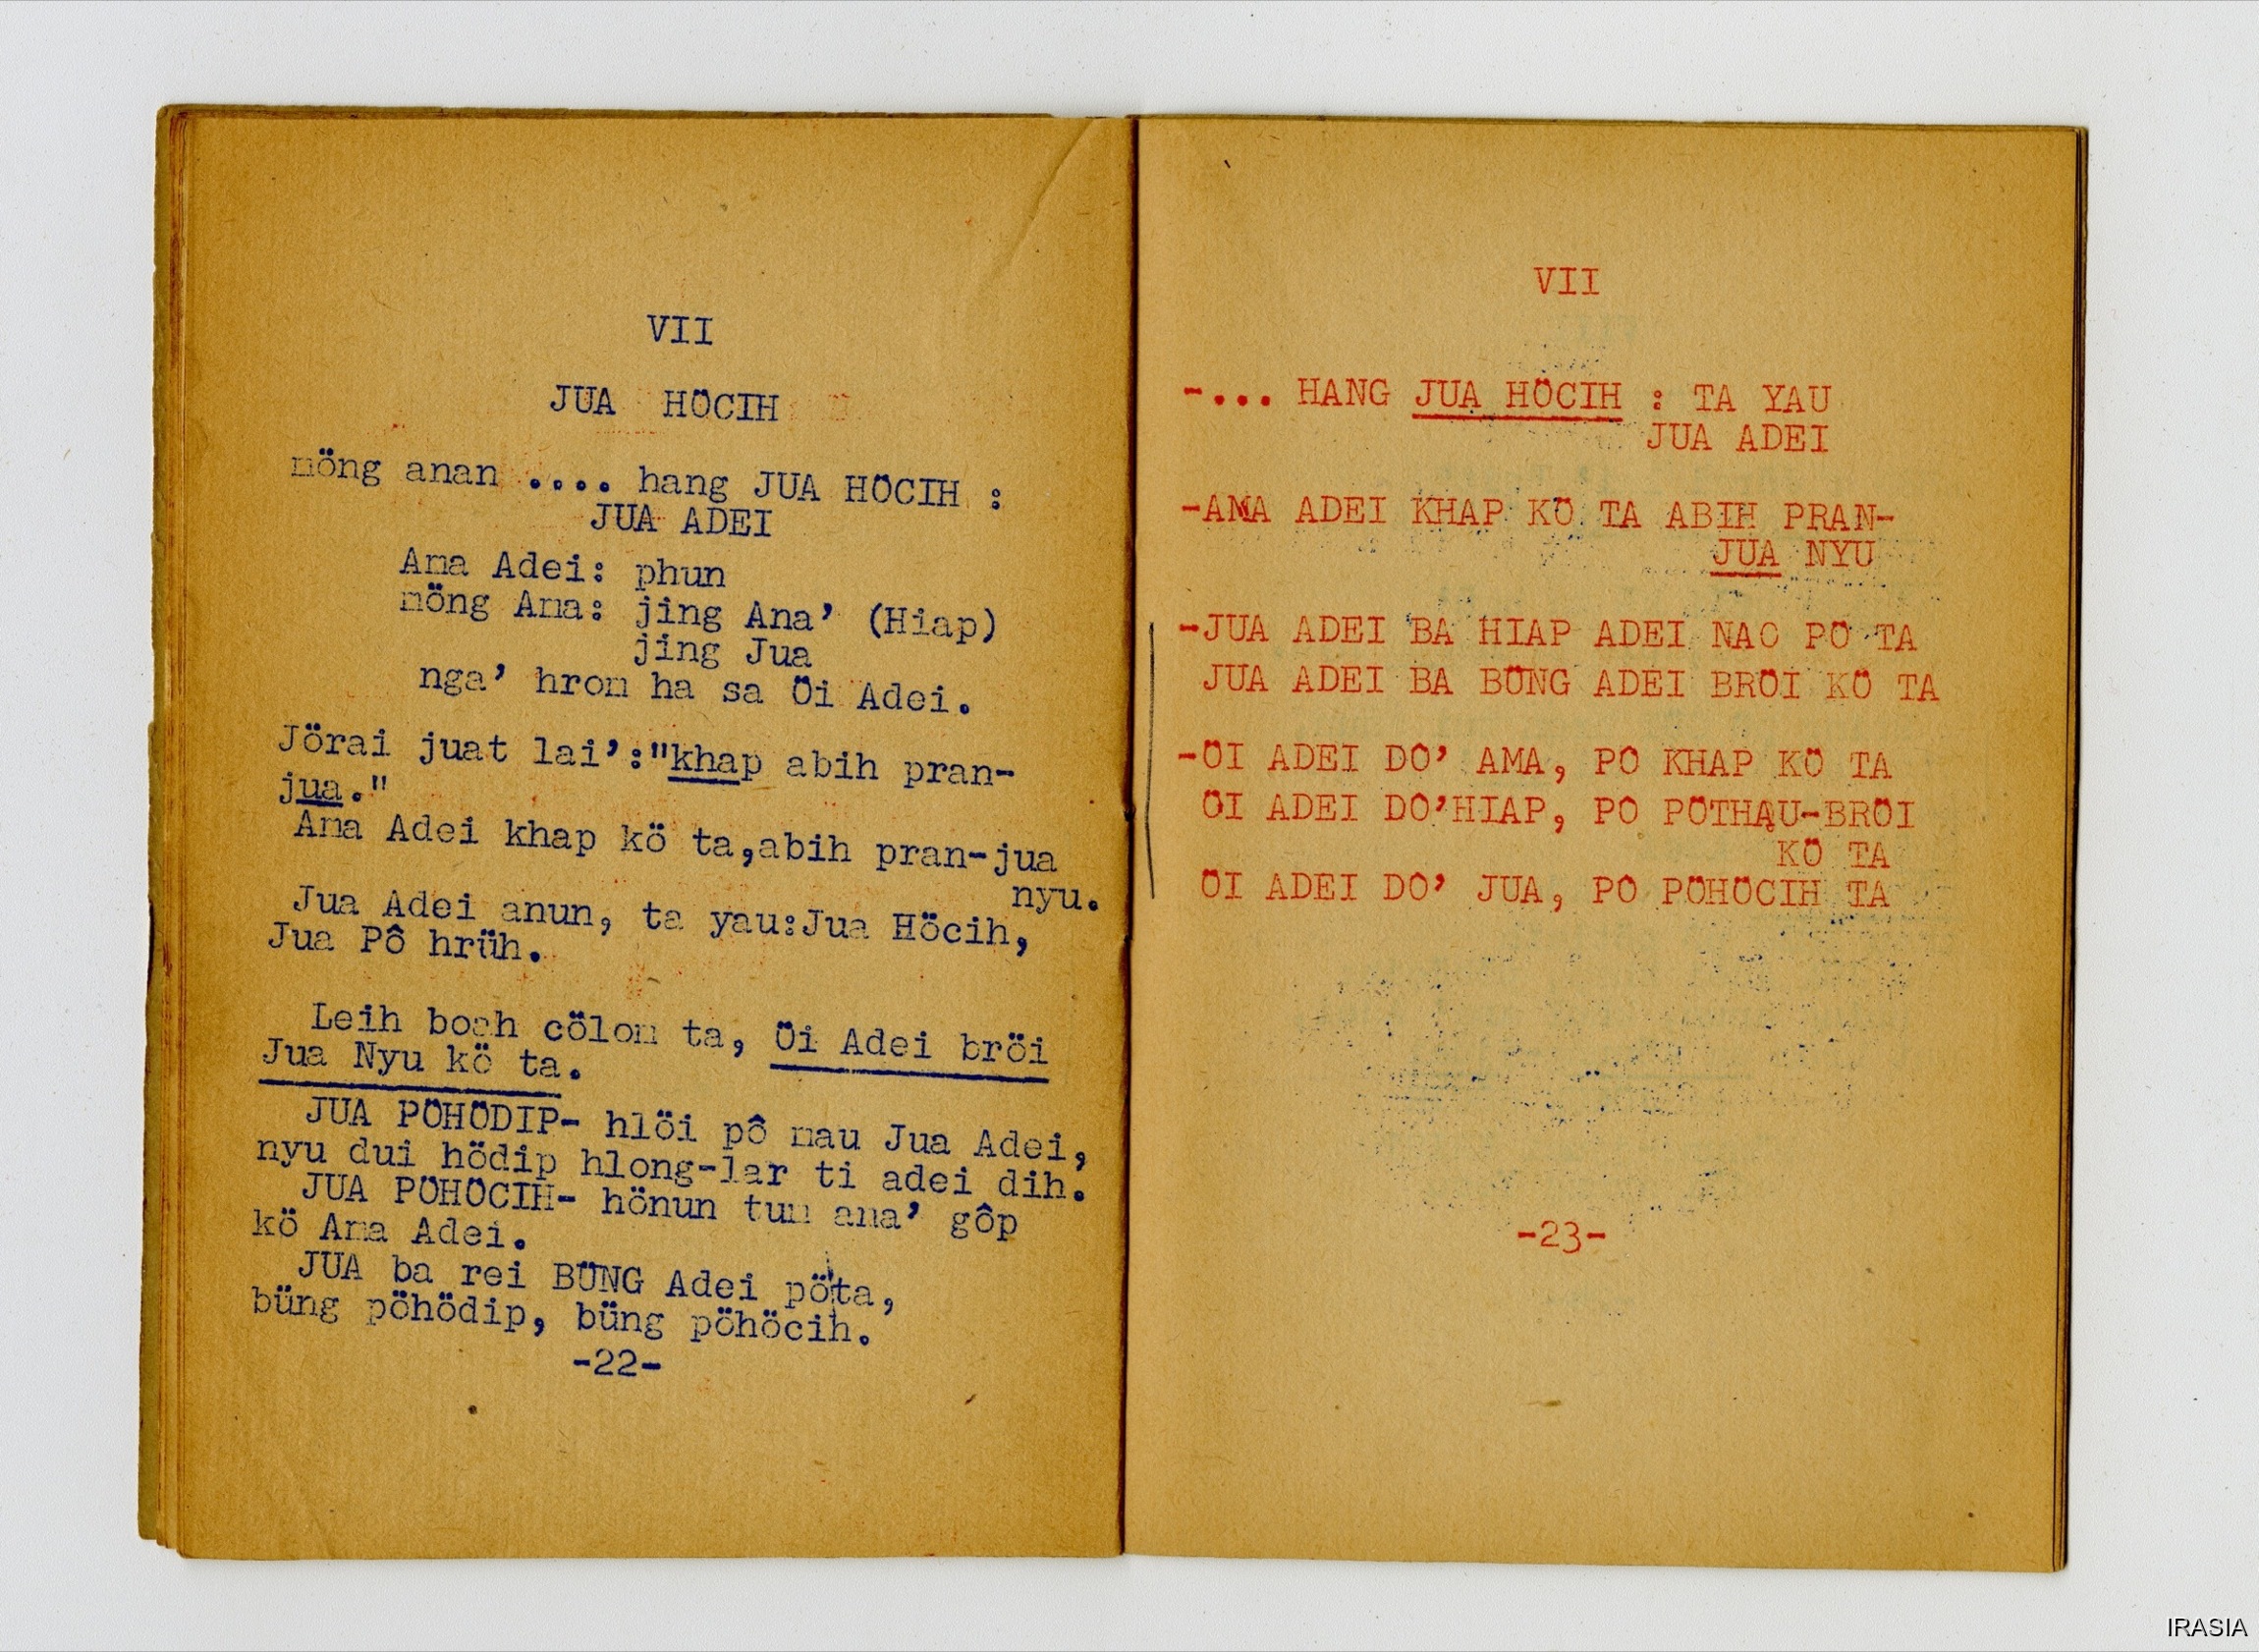 VII
JUA HÖCIH
nöng anan .... hang JUA HÖCIH :
JUA ADEI
Ama Adei: phun
nöng Ama: jing Ana' (Hiap)
jing Jua
nga' hrom ha sa Öi Adei.
Jörai juat lai':"khap abih pran-
jua."
Ama Adei khap kö ta,abih pran-jua
nyu.
Jua Adei anun, ta yau:Jua Höcih,
Jua Pô hrüh.
Leih boah cölom ta, Öi Adei bröi
Jua Nyu kö ta.
JUA PÖHÖDIP- hlöi pô mau Jua Adei,
nyu dui hödip hlong-lar ti adei dih.
JUA PÖHÖCIH- hönun tum ana' gôp
kö Ama Adei.
JUA ba rei BÜNG Adei pö ta,
büng pöhödip, büng pöhöcih.
-22-
VII
-... HANG JUA HÖCIH : TA YAU
JUA ADEI
-AMA ADEI KHAP KÖ TA ABIH PRAN-
JUA NYU
-JUA ADEI BA HIAP ADEI NAO PÖ TA
JUA ADEI BA BÜNG ADEI BRÖI KÖ TA
-ÖI ADEI DO' AMA, PO KHAP KÖ TA
ÖI ADEI DO'HIAP, PO PÖTHAU-BRÖI
KÖ TA
ÖI ADEI DO' JUA, PO PÖHÖCIH TA
-23-
IRASIA